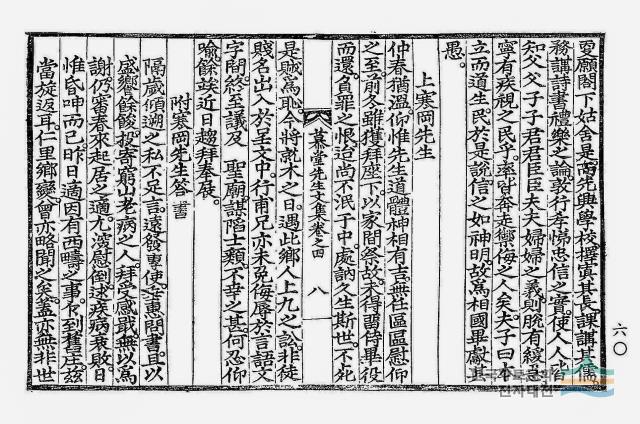 更願閤下姑舍是焉先興學校擇寘其長課講其儒
務講詩書禮樂之論敦行孝悌忠信之實使人人皆
知父父子子君君臣臣夫夫婦婦之義則脫有緩急
寧有疾視之民乎率皆奔走禦侮之人矣夫子曰本
立而道生民於是說信之如神明故爲相國畢獻其
愚
上寒岡先生
仲春猶溫仰惟先生道體神相有吉無任區區慰仰
之至前冬雖獲拜座下以家間祭故未得留侍畢役
而還負罪之恨迨尚不泯于中處訥久生斯世不死
慕堂先生文集卷之四 八
是賊爲恥今將就木之日遇此鄕人上九之訟非徒
賤名出入於呈文中行甫兄亦未免侮辱於言語文
字間終至議及 聖廟誣陷士類不幸之甚何忍仰
喩餘竢近日趨拜奉展
附寒岡先生答書
隔歲傾遡之私不足言遠發專使委惠問書且以
盛饗餘酸投寄窮山老病之人拜受感戢無以爲
謝仍審春來起居之適尤濱慰倒逑疾病衰敗日
惟昏呻而已昨日適因有西疇之事乍到舊庄玆
當旋返耳仁里鄕變曾亦略聞之矣蓋亦無非世
六〇
전자대전